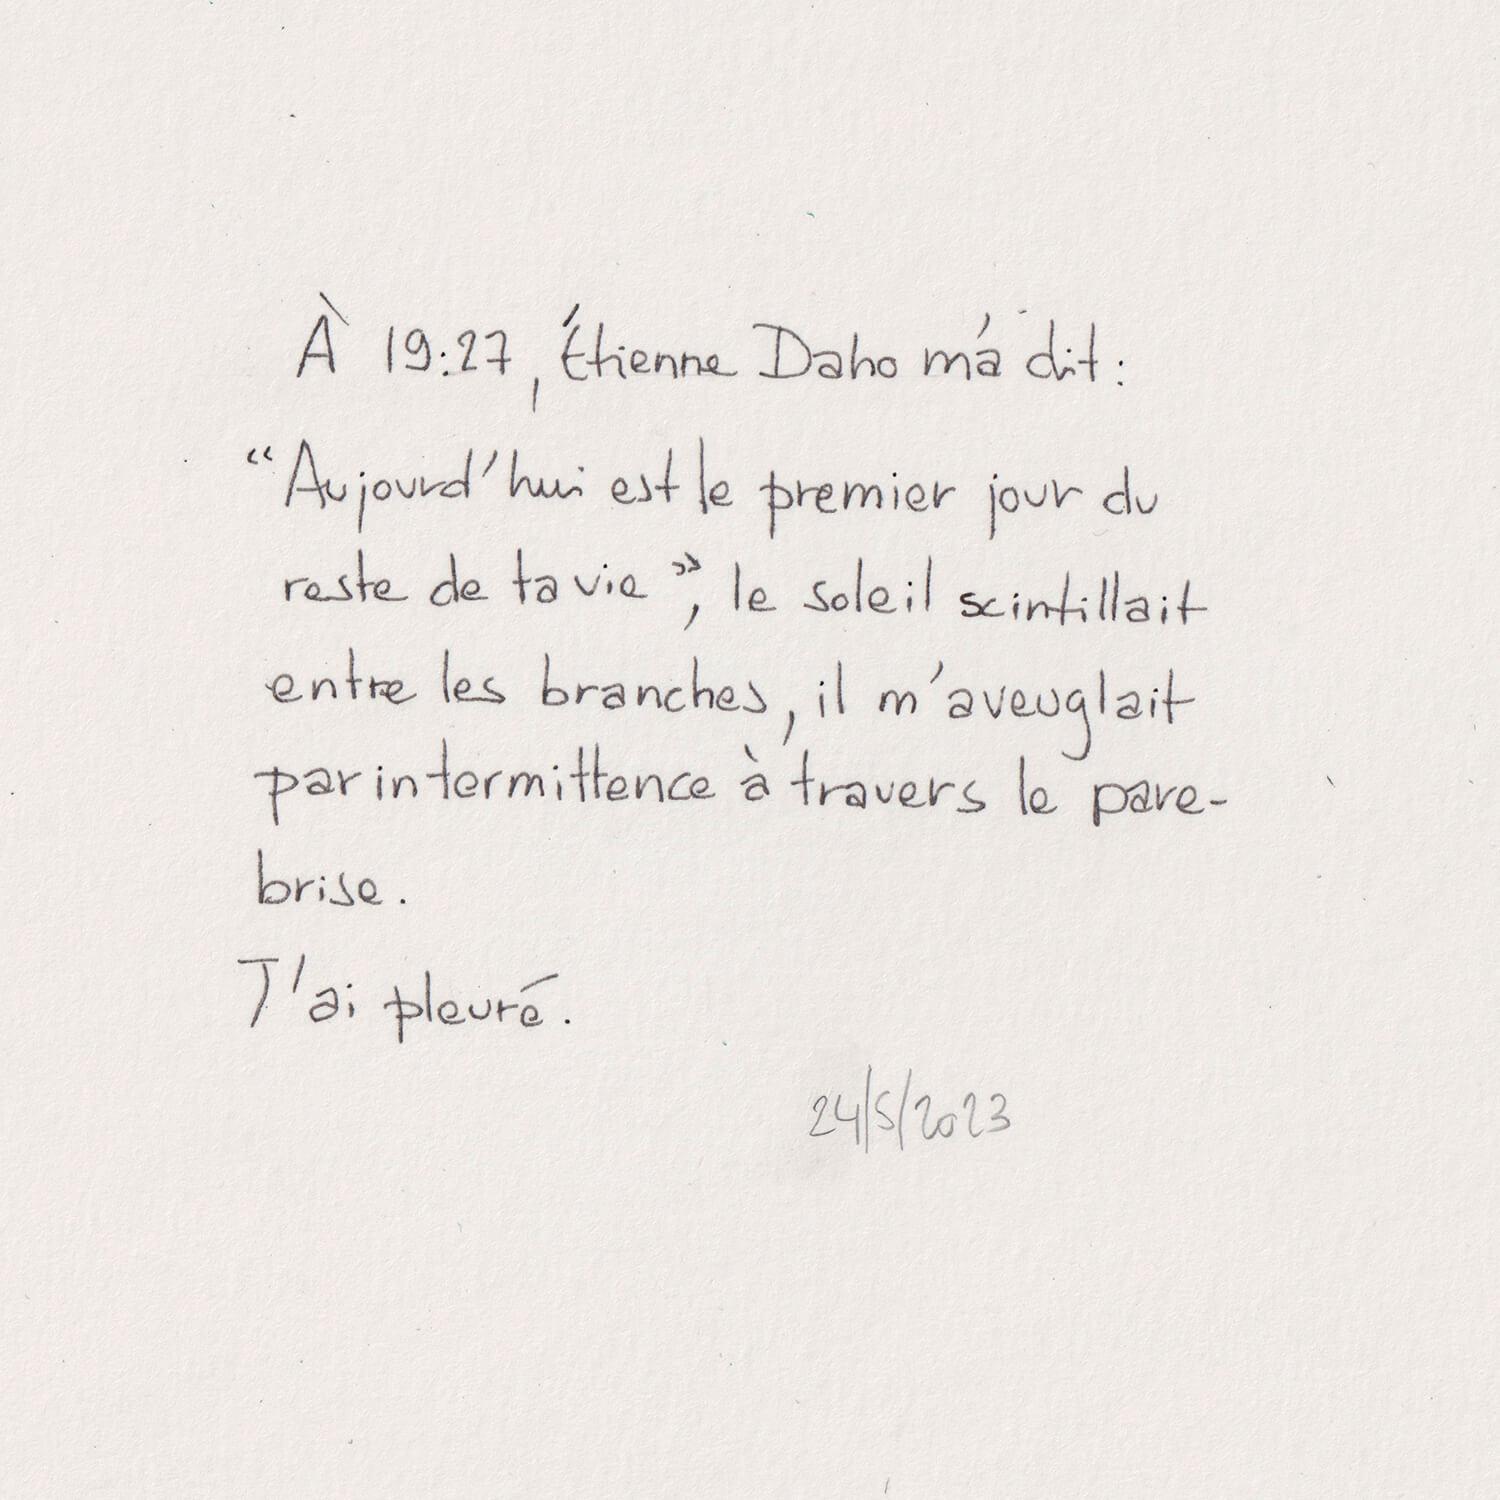 À 19:27, Étienne Daho m'a dit:
“Aujourd'hui est le premier jour du
reste de ta vie”, le soleil scintillait
entre les branches, il m'aveuglait
par intermittence à travers le pare-
brise.
J'ai pleuré.
24/5/2023